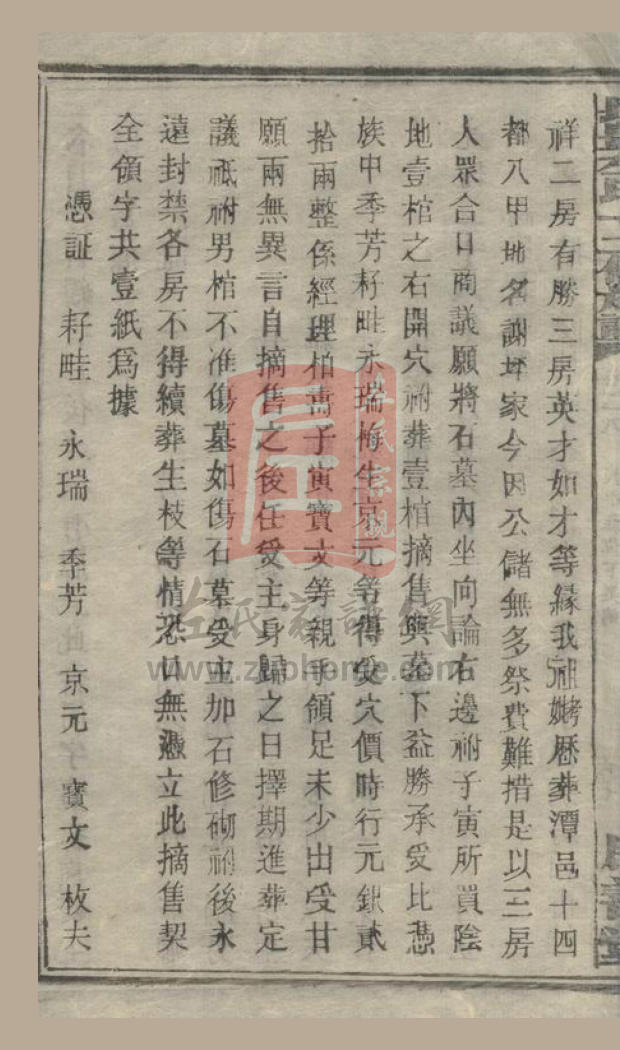 祥二房有勝三房英才如才等緣我祖妣歷葬潭邑十四
都八甲地名謝坪家今因公儲無多祭費難措是以三房
人眾合口商議願將石墓內坐向論右邊祔子寅所買陰
地壹棺之右開穴祔葬壹棺摘售與墓下益勝承受比憑
族中季芳籽畦永瑞梅生京元等得受穴價時行元銀貳
拾兩整係經理柏壽子寅寶文等親手領足未少出受甘
願兩無異言自摘售之後任受主身歸之日擇期進葬定
議祇祔男棺不准傷墓如傷石墓受主加石修砌祔後永
遠封禁各房不得續葬生枝等情恐口無憑立此摘售契
全領字共壹紙爲據
憑証 籽畦 永瑞 季芳 京元 寶文 枚夫
左氏族譜網
www.zuohome.com